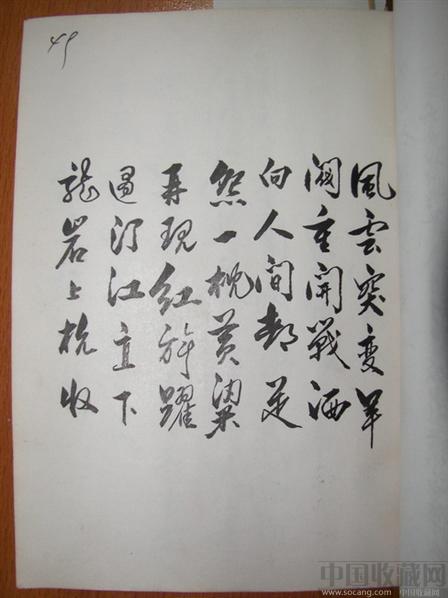 49
風雲突變軍
閥重開戰洒
向人間都是
怨一枕黃粱
再現紅旂躍
過汀江直下
龍岩上杭收
中国收藏网
www.socang.com 中国收藏网